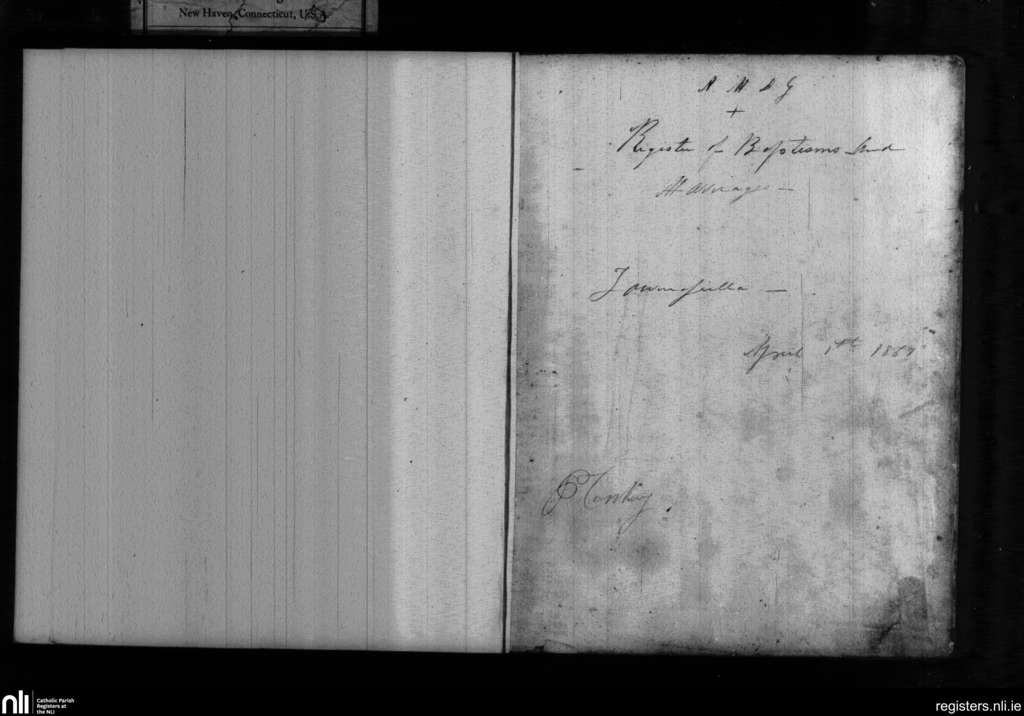 New Haven, Connecticut, U.S.A.
A M D G
+
Register of Baptisms And
Marriages —
April 1st 1889
nli
Catholic Parish
Registers at
the NLI
registers.nli.ie